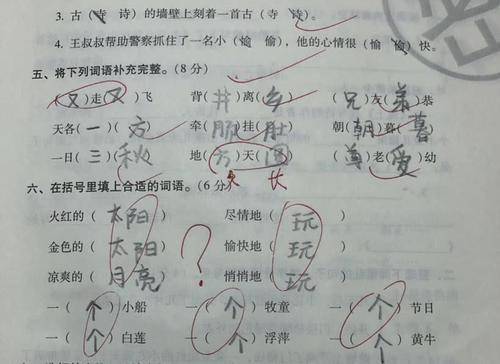 3. 古(寺 诗)的墙壁上刻着一首古(寺 诗)。
4. 王叔叔帮助警察抓住了一名小(偷 愉),他的心情很(愉 偷)快。
五、将下列词语补充完整。(8分)
(又)走(又)飞 背(井)离(乡) (兄)友(弟)恭
天各(一)(方) 牵(肠)挂(肚) 朝(朝)暮(暮)
一日(三)(秋) 地(方)天(圆) (尊)老(爱)幼
久 长
六、在括号里填上合适的词语。(6分)
火红的(太阳) 尽情地(玩)
金色的(太阳) 愉快地(玩)
凉爽的(月亮) 悄悄地(玩)
?
一(个)小船 一(个)牧童 一(个)节日
一(个)白莲 一(个)浮萍 一(个)黄牛